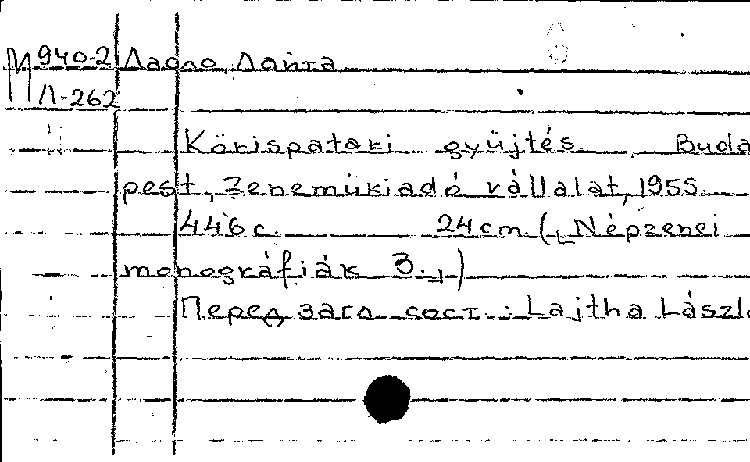 М 940-2 Ласло, Лайта
Л-262
Kőrispataki gyűjtés. Buda
pest, Zeneműkiadó vállalat, 1955.
446 с. 24 cm. (Népzenei
monográfiák 3.)
Перед загл. сост.: Lajtha Lászl